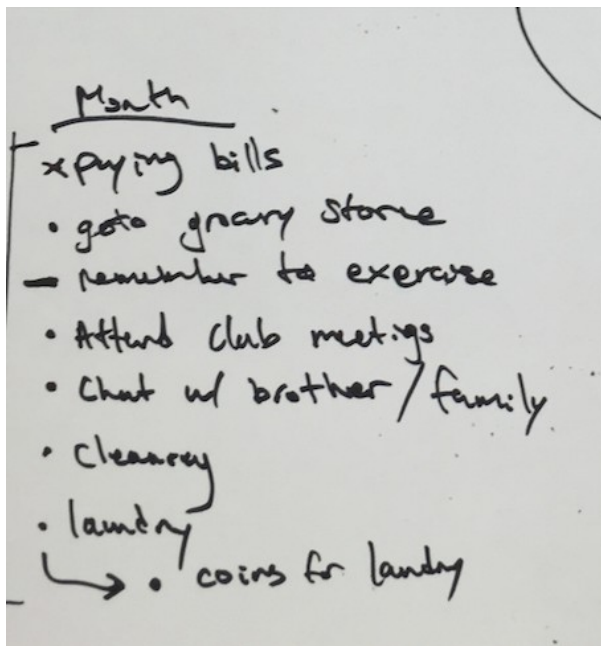 Month
x paying bills
• goto grocery store
- remember to exercise
• Attend club meetigs
• Chat w/ brother / family
• cleaning
• laundry
↳ • coins for laundry